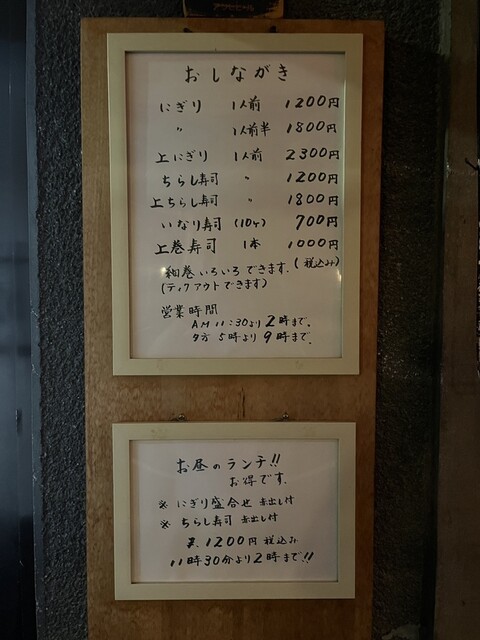 おしながき
にぎり 1人前 1200円
〃 1人前半 1800円
上にぎり 1人前 2300円
ちらし寿司 〃 1200円
上ちらし寿司 〃 1800円
いなり寿司 (10ヶ) 700円
上巻寿司 1本 1000円
(税込み)
細巻いろいろできます.
(テイクアウトできます)
営業時間
AM 11:30より2時まで.
夕方 5時より9時まで.
お昼のランチ!!
お得です.
※ にぎり盛合せ 赤出し付
※ ちらし寿司 赤出し付
¥1200円 税込み
11時30分より2時まで!!